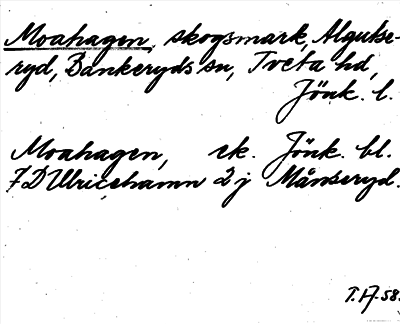 Moahagen, skogsmark, Algutse-
ryd, Bankeryds sn, Tveta hd,
Jönk. l.
Moahagen, ek. Jönk. bl.
7D Ulricehamn 2j Månseryd.
T.H. 58.